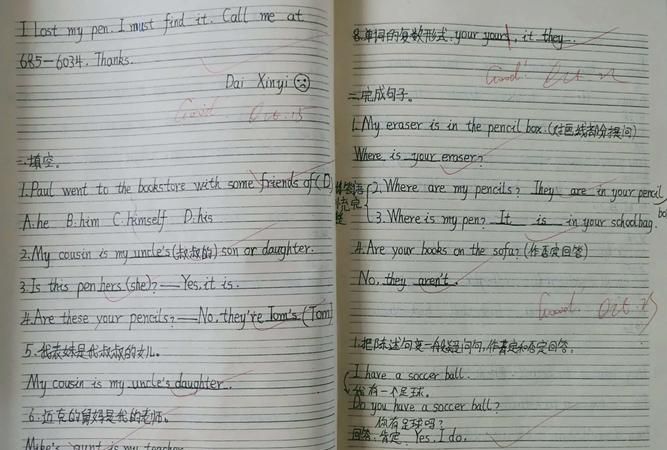 I Lost my pen. I must find it. Call me at
685-6034. Thanks.
Dai Xinyi
Good! Oct. 15
二.填空。
1. Paul went to the bookstore with some friends of (D)
A. he B. him C. himself D. his
2. My cousin is my uncle's (叔叔的) son or daughter.
3. Is this pen hers (she)? — Yes, it is.
4. Are these your pencils? — No, they're Tom's (Tom)
5. 我表妹是我叔叔的女儿。
My cousin is my uncle's daughter.
6. 迈克的舅妈是我的老师。
Mike's aunt is my teacher
8. 单词的复数形式. your yours, it they.
Good!
二.完成句子。
1. My eraser is in the pencil box. (对画线部分提问)
Where is your eraser?
2. Where are my pencils? They are in your pencil box
3. Where is my pen? It is in your schoolbag.
4. Are your books on the sofa? (作否定回答)
No, they aren't.
Good! Oct
1. 把陈述句变一般疑问句,作肯定和否定回答。
I have a soccer ball.
我有一个足球。
Do you have a soccer ball?
你有足球吗?
回答: 肯定: Yes, I do.